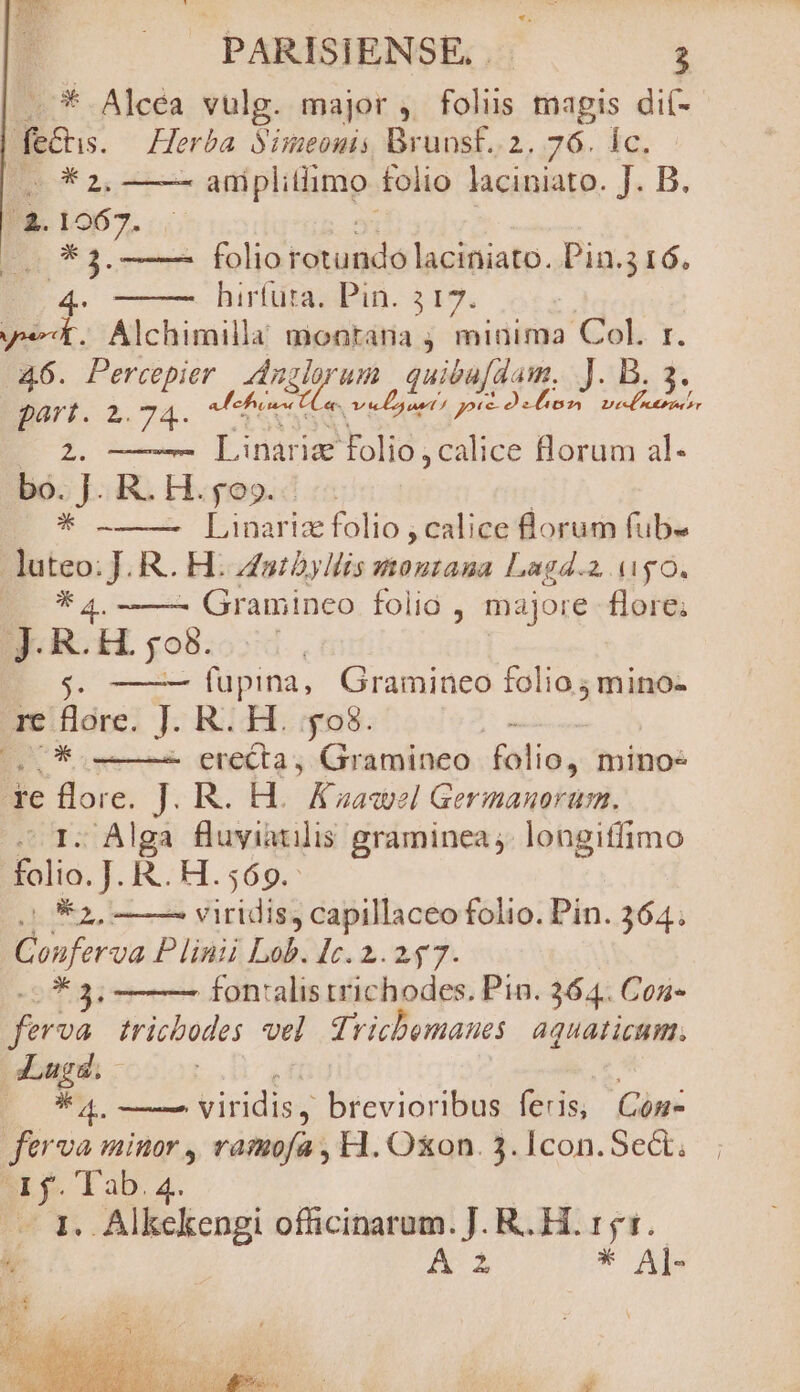 PARISIENSE. 3
* Alcéa vulg. major, foliis magis diſ-
ſectis. Herba Simeonis Brunsf. 2. 76. Ic.
* 2. —— ampliſſimo folio laciniato. J. B.
2. 1067.
* 3. —— folio rotundo laciniato. Pin. 316.
4. —— hirſuta. Pin. 317.
Alchimilla montana, minima Col. 1.
46. Percepier Anglorum quibuſdam. J. B. 3.
part. 2. 74.
2. —— Linariæ folio, calice florum al-
bo. J. R. H. 509.
* —— Linariæ folio, calice florum ſub-
luteo. J. R. H. Anthyllis montana Lugd. 2. 1150.
* 4. —— Gramineo folio, majore flore.
J. R. H. 508.
5. —— ſupina, Gramineo folio, mino-
re flore. J. R. H. 508.
* —— erecta, Gramineo folio, mino-
re flore. J. R. H. Knawel Germanorum.
1. Alga fluviatilis graminea, longiſſimo
folio. J. R. H. 569.
* 2. —— viridis, capillaceo folio. Pin. 364.
Conferva Plinii Lob. Ic. 2. 257.
* 3. —— fontalis trichodes. Pin. 364. Con-
ferva trichodes vel Trichomanes aquaticum.
Lugd.
* 4. —— viridis, brevioribus ſetis, Con-
ferva minor, ramoſa, H. Oxon. 3. Icon. Sect.
15. Tab. 4.
1. Alkekengi officinarum. J. R. H. 151.
A 2 * Al-